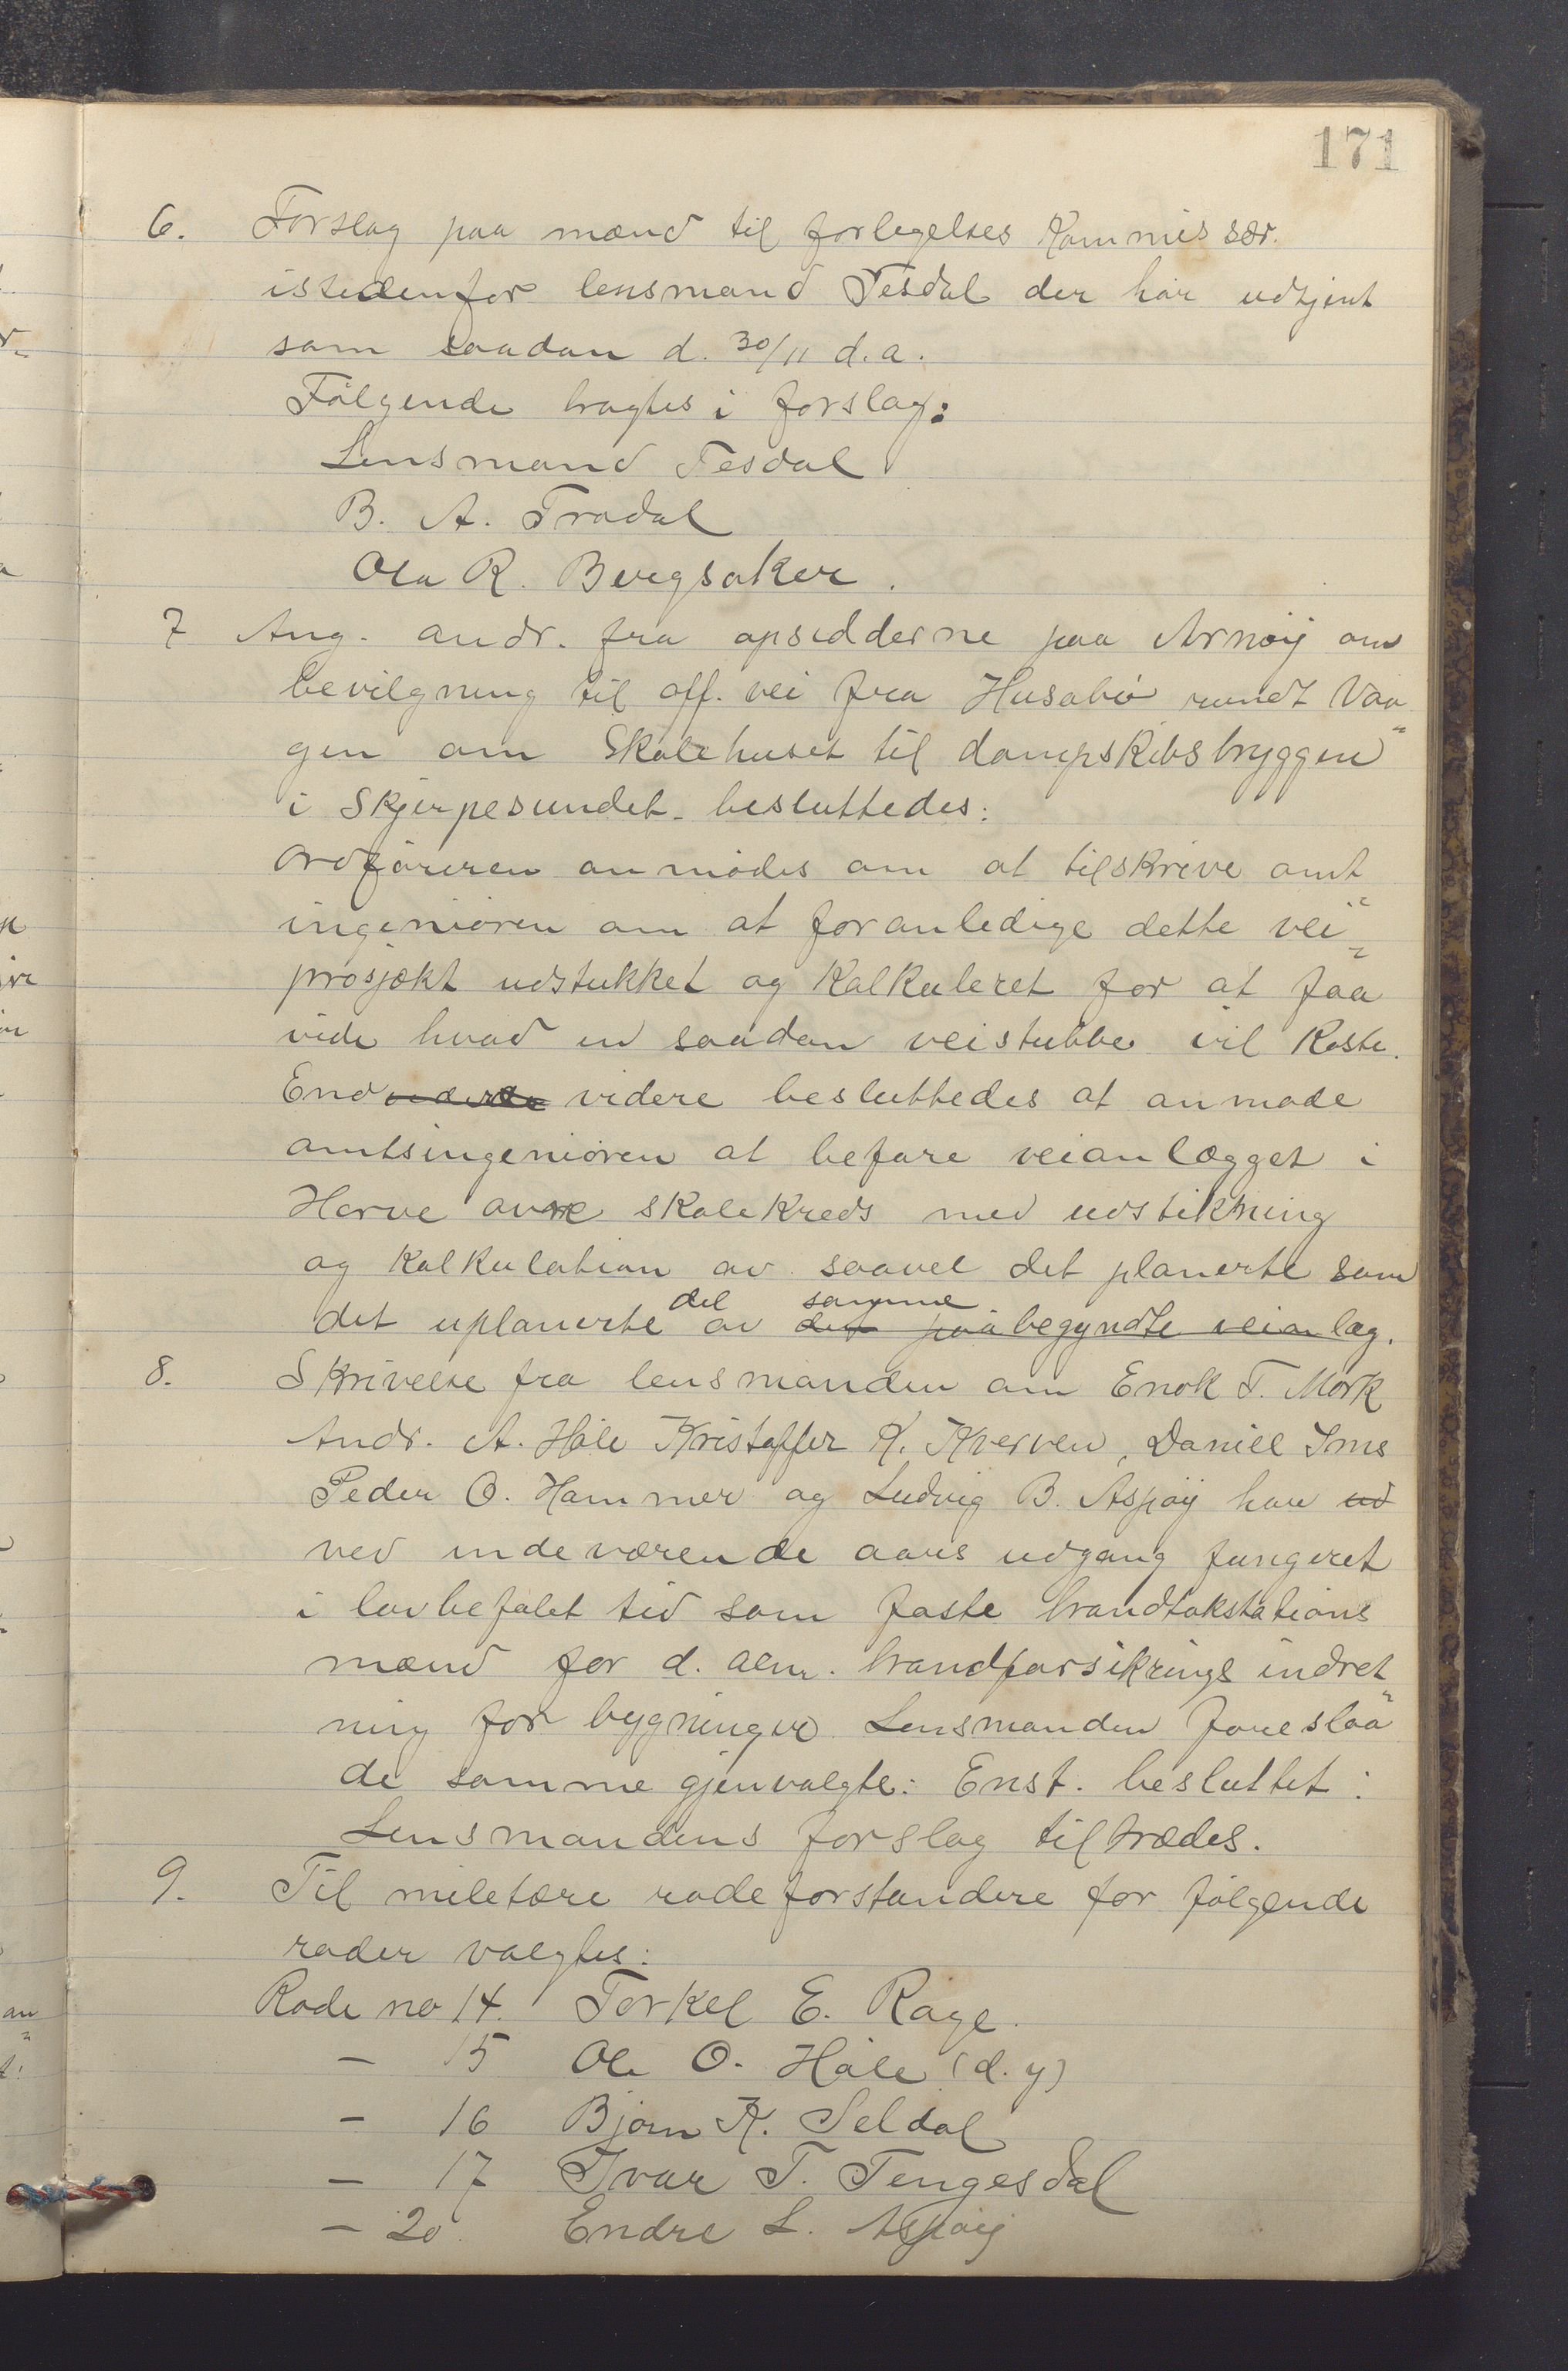 171
6. Forslag paa mænd til forlegelses Kommissær.
istedenfor lensmand Tesdal der har udtjent
som saadan d. 30/11 d.a.
Følgende bragtes i forslag:
Lensmand Tesdal
B. A. Tradal
Ola R. Bergsaker.
7 Ang. andr. fra opsidderne paa Arnøy om
bevilgning til off. vei fra Husabø rundt Vaa
gen om Skolehuset til dampskibsbryggen
i Skjerpesundet. besluttedes:
Ordføreren anmodes om at tilskrive amt
ingeniøren om at foranledige dette vei
prosjækt udstukket og Kalkuleret for at faa
vide hvad en saadan veistubbe vil Koste.
End videre besluttedes at anmode
amtsingeniøren at befare veianlægget i
Herve skolekreds med udstikning
og Kalkulation av saavel det planerte som
del samme
det uplanerte av det paabegyndte veianlæg.
8. Skrivelse fra lensmanden om Enok T. Mørk
Andr. A. Håle Kristoffer K. Kverven, Daniel Ims
Peder O. Hammer og Ludvig B. Aspøy har ud
ved indeværende aars udgang fungeret
i lovbefalet tid som faste brandtakstations
mænd for d. alm. brandforsikrings indret
ning for bygninger. Lensmanden foreslaa
de samme gjenvalgte: Enst. besluttet:
Lensmandens forslag tiltrædes.
9. Til miletære rodeforstandere for følgende
roder valgtes:
Rode no 14. Torkel E. Røge.
- 15 Ole O. Håle (d. y)
- 16 Bjørn K. Seldal
- 17 Ivar T. Tengesdal
- 20 Endre L. Aspøy